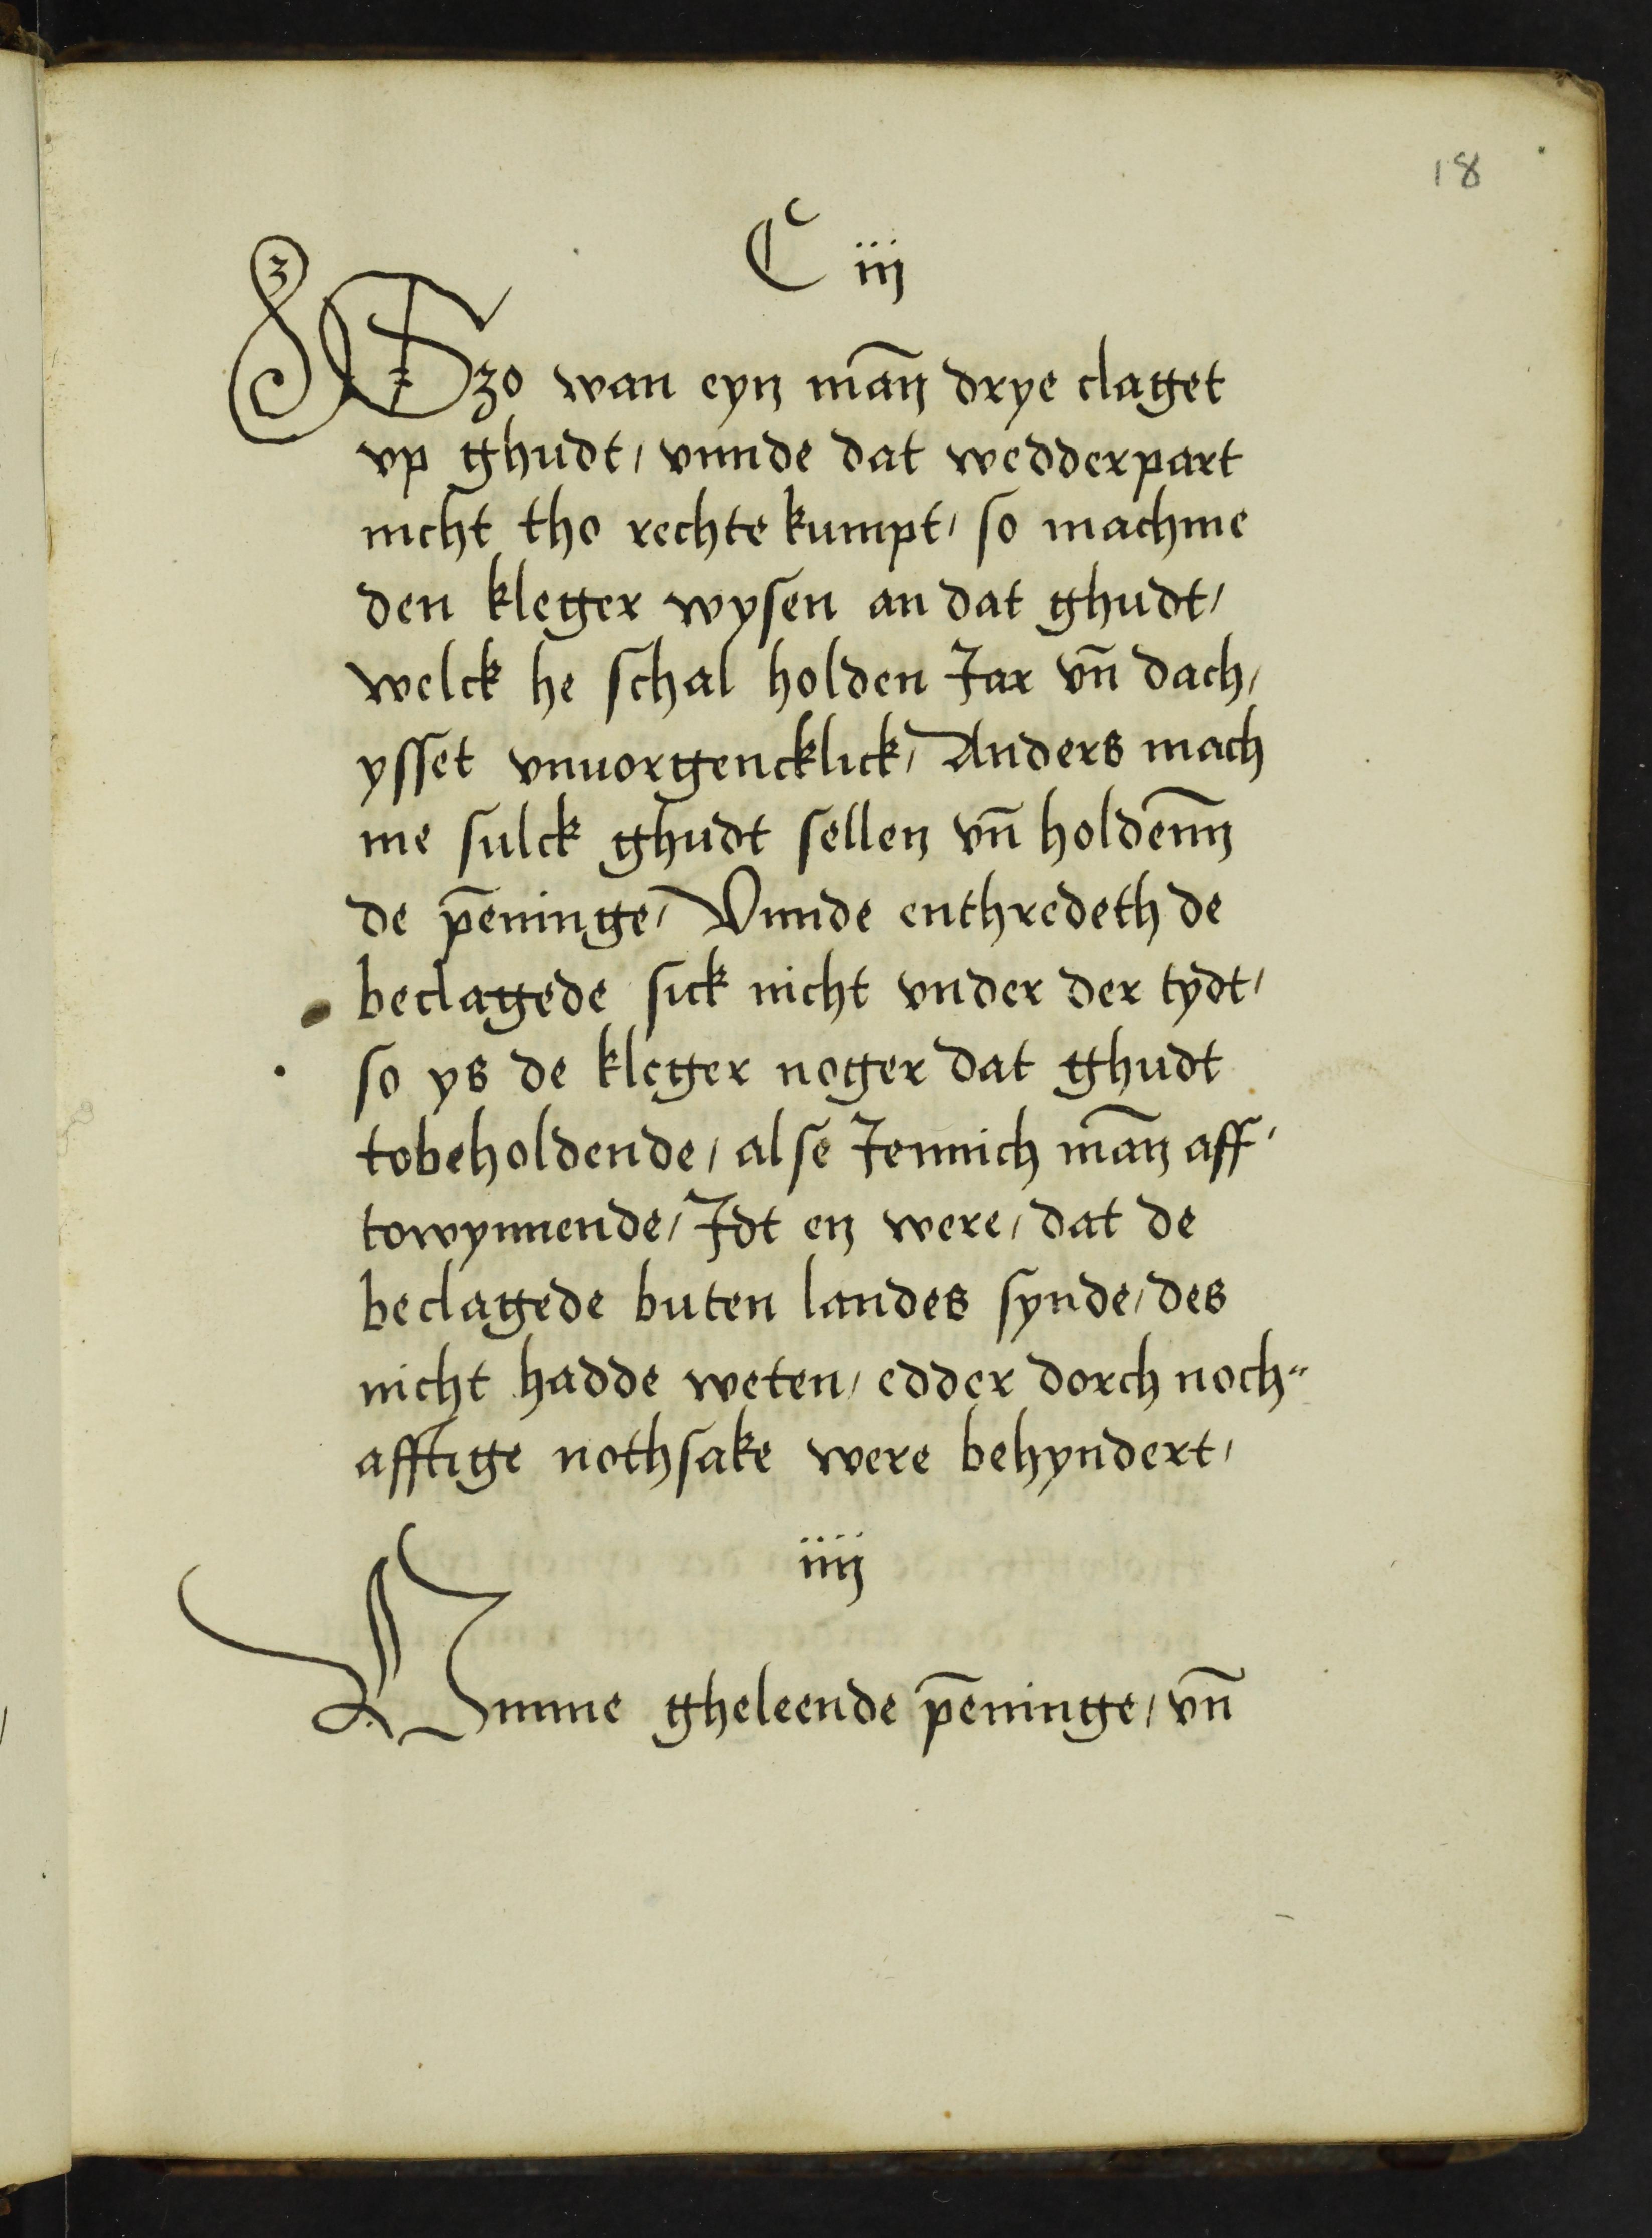 18
C iij
Szo wan eyn mañ drye claget
vp ghudt / vnnde dat wedderpart
nicht tho rechte kumpt / so machme
den kleger wysen an dat ghudt /
welck he schal holden Jar vn̄ dach /
ysset vnuorgencklick / Anders mach
me sulck ghudt sellen vn̄ holdenn̄
de pēninge / Vnnde enthredeth de
beclagede sick nicht vnder der tydt /
so ys de kleger neger dat ghudt
tobeholdende / alse Jennich mañ aff /
towynnende / Jdt en were / dat de
beclagede buten landes synde / des
nicht hadde weten / edder dorch noch„
afftige nothsake were behyndert /
iiij
Umme gheleende pēninge / vn̄